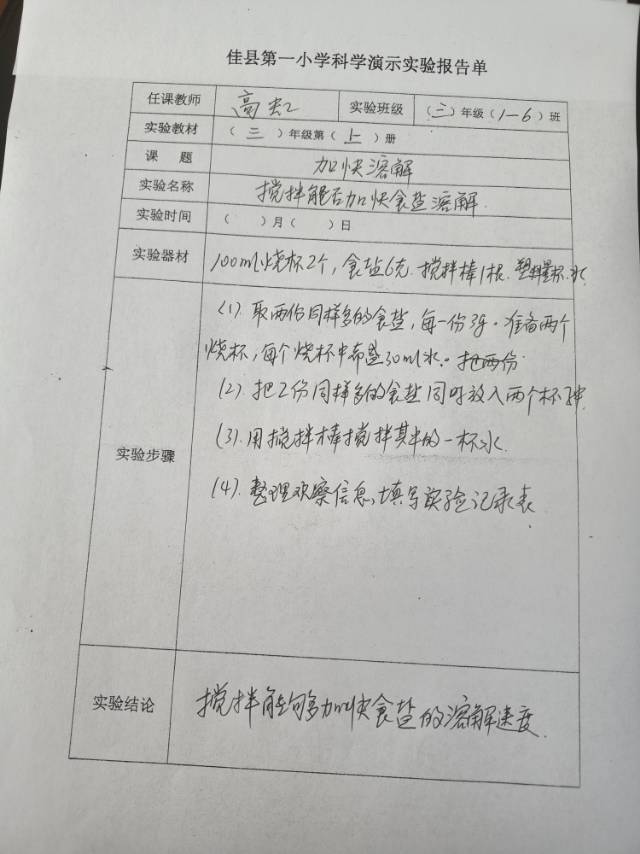 佳县第一小学科学演示实验报告单
任课教师 高 实验班级 （三）年级（1—6）班
实验教材 （三）年级第（上）册
课 题 加快溶解
实验名称 搅拌能否加快食盐溶解.
实验时间 （ ）月（ ）日
实验器材 100ml烧杯2个，食盐6克. 搅拌棒1根. 塑料量杯.水
(1). 取两份同样多的食盐，每一份3g. 准备两个
烧杯，每个烧杯中 30ml水. 把两份
(2). 把2份同样多的食盐同时放入两个杯子中
实验步骤 (3). 用搅拌棒搅拌其中的一杯水.
(4). 整理观察信息,填写实验记录表
实验结论 搅拌能够加快食盐的溶解速度.